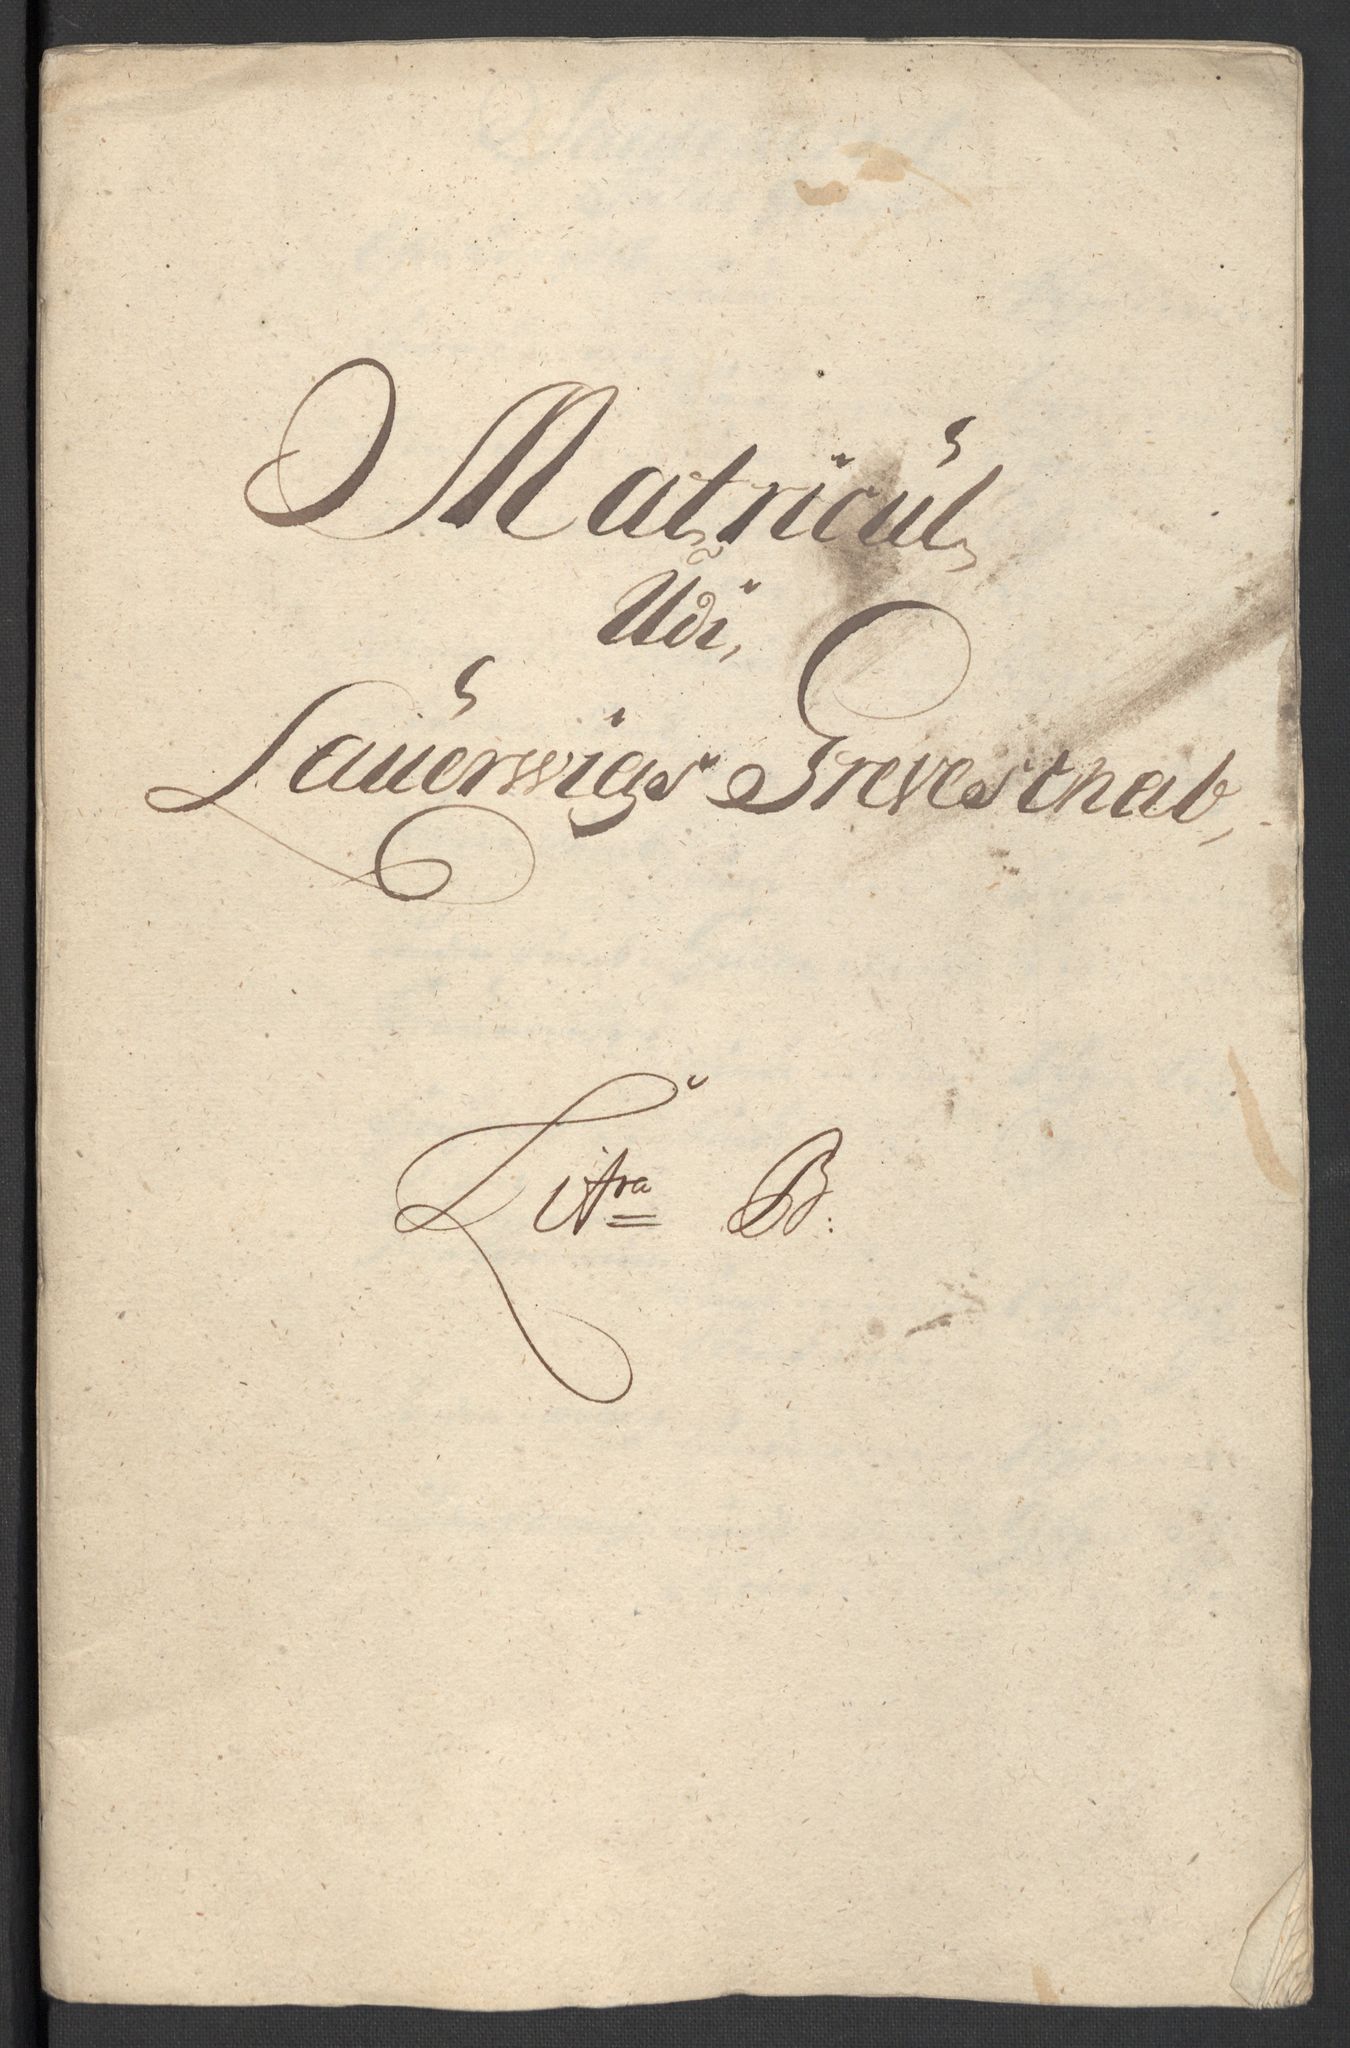 Matricul
Udi,
Lauerwigs Greveschab,
Litra B.